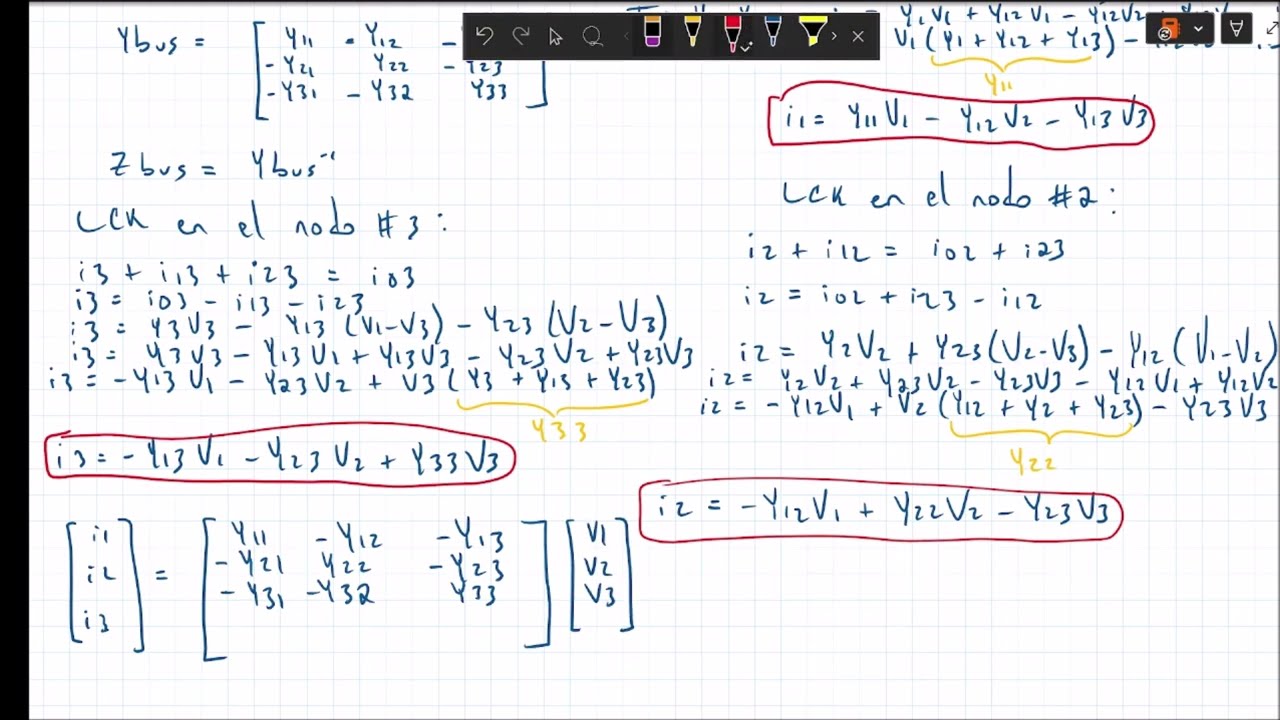 Ybus = [ Y11 - Y12 -
- Y21 Y22 - Y23
- Y31 - Y32 Y33 ]
Zbus = Ybus⁻¹
LCK en el nodo #3:
i3 + i13 + i23 = i03
i3 = i03 - i13 - i23
i3 = Y3V3 - Y13 (V1-V3) - Y23 (V2-V3)
i3 = Y3V3 - Y13V1 + Y13V3 - Y23V2 + Y23V3
i3 = -Y13V1 - Y23V2 + V3 (Y3 + Y13 + Y23)
Y33
i3 = -Y13V1 - Y23V2 + Y33V3
[ i1 ] [ Y11 - Y12 - Y13 ] [ V1 ]
[ i2 ] = [ - Y21 Y22 - Y23 ] [ V2 ]
[ i3 ] [ - Y31 - Y32 Y33 ] [ V3 ]
Y1V1 + Y12V1 - Y12V2
V1 (Y1 + Y12 + Y13) -
Y11
i1 = Y11V1 - Y12V2 - Y13V3
LCK en el nodo #2:
i2 + i12 = i02 + i23
i2 = i02 + i23 - i12
i2 = Y2V2 + Y23(V2-V3) - Y12(V1-V2)
i2 = Y2V2 + Y23V2 - Y23V3 - Y12V1 + Y12V2
i2 = -Y12V1 + V2 (Y12 + Y2 + Y23) - Y23V3
Y22
i2 = -Y12V1 + Y22V2 - Y23V3